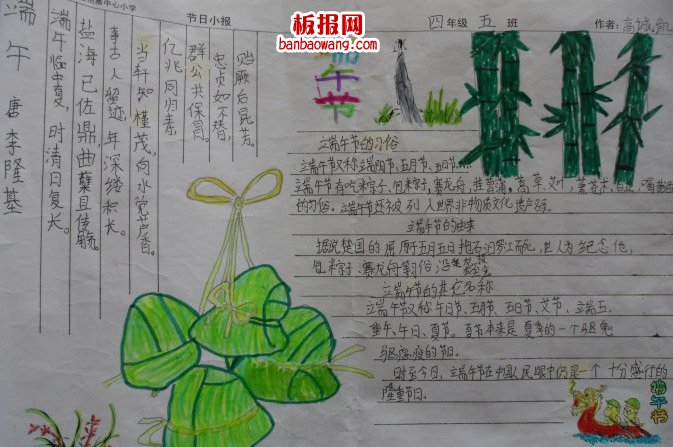 中心小学
节日小报
四年级 五 班
作者：
板报网
banbaowang.com
端午 唐 李隆基
端午临中夏，时清日复长。
盐海已佐鼎曲糵且传觞。
事古人留迹，年深缕积长。
当轩知槿茂，向水觉芦香。
亿兆同归寿，
群公共保昌。
忠贞如不替，
贻厥后昆芳。
端午节
端午节的习俗
端午节又称端阳节、五月节、五日节
端午节有吃粽子，赛龙舟，挂菖蒲，蒿草，艾叶，薰苍术、白芷，喝
的习俗。端午节还被列入世界非物质文化遗产
端午节的由来
据说楚国的屈原于五月五日抱石汨罗江而死，世人为纪念他，
包粽子、赛龙舟等习俗沿
端午节的其它名称
端午节又称午日节、五月节、五日节、艾节、端五、
重午、午日、夏节，夏节本来是夏季的一个驱
驱瘟疫的节日。
时至今日，端午节在中国人民眼中仍是一个十分盛行的
隆重节日。
端午节